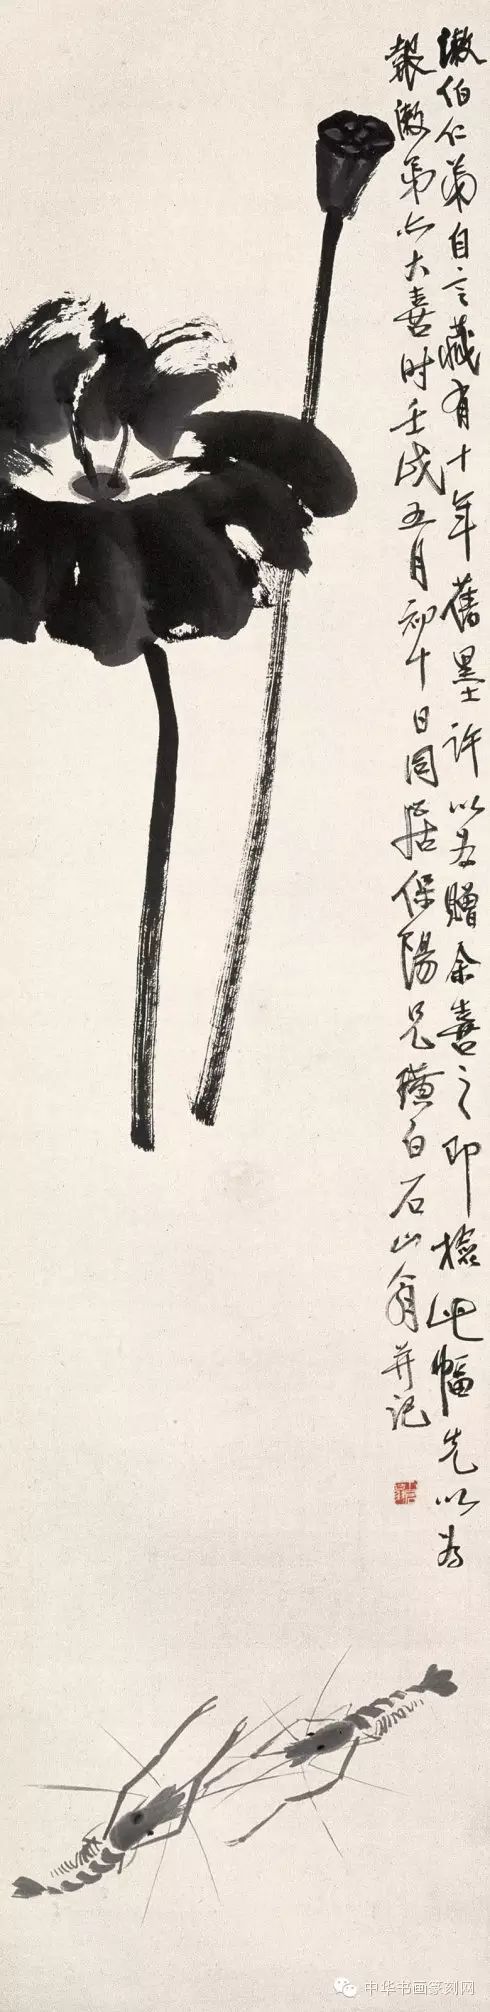 伯仁弟自言藏有十年舊墨許以為贈余喜之即檢此幅先以為
報 弟亦大喜时壬戌五月初十日同居保陽兄璜白石山翁并记
中华书画篆刻网